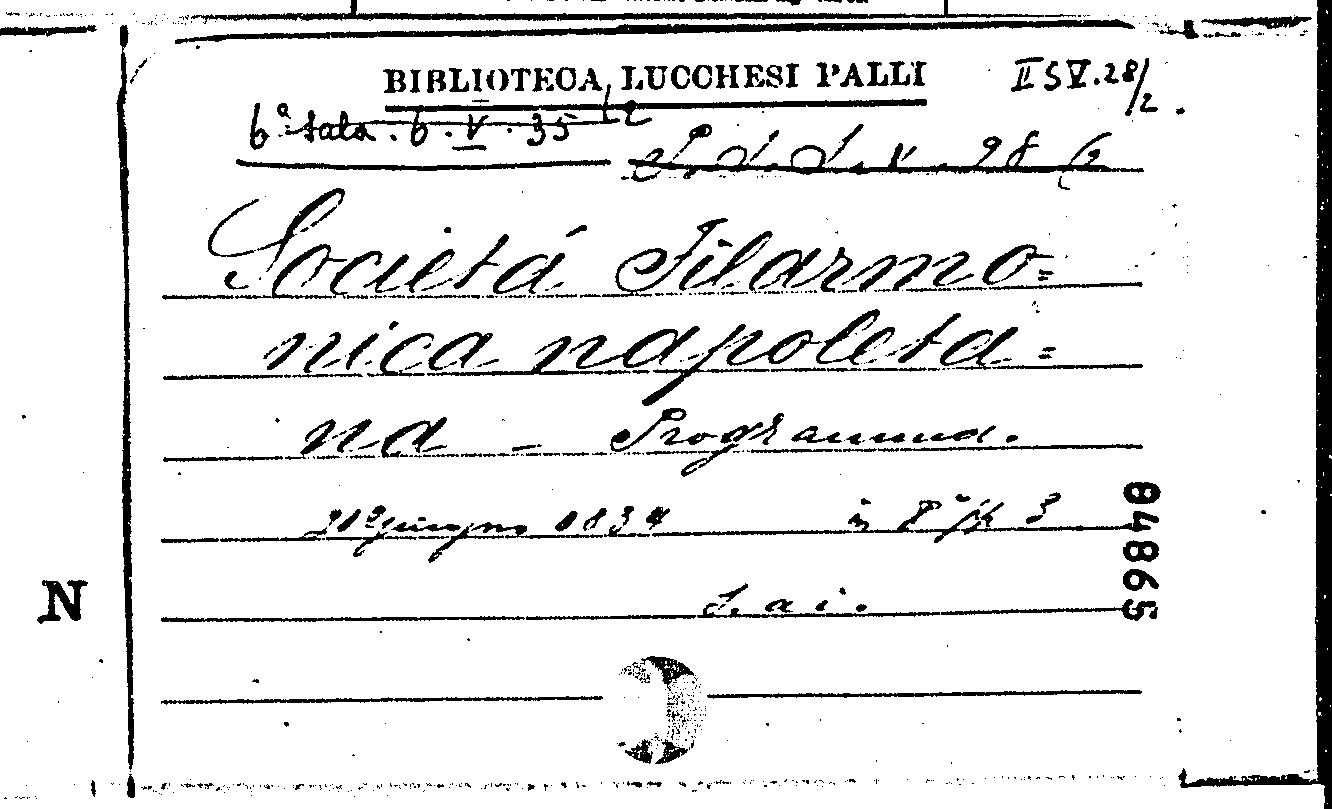 BIBLIOTECA LUCCHESI PALLI
II S V. 28/2.
6ª Sala. 6. V. 35/2
Societá Filarmo=
nica napoleta=
na - Programma.
giugno 183
in 8°
S. a i.
04865
N